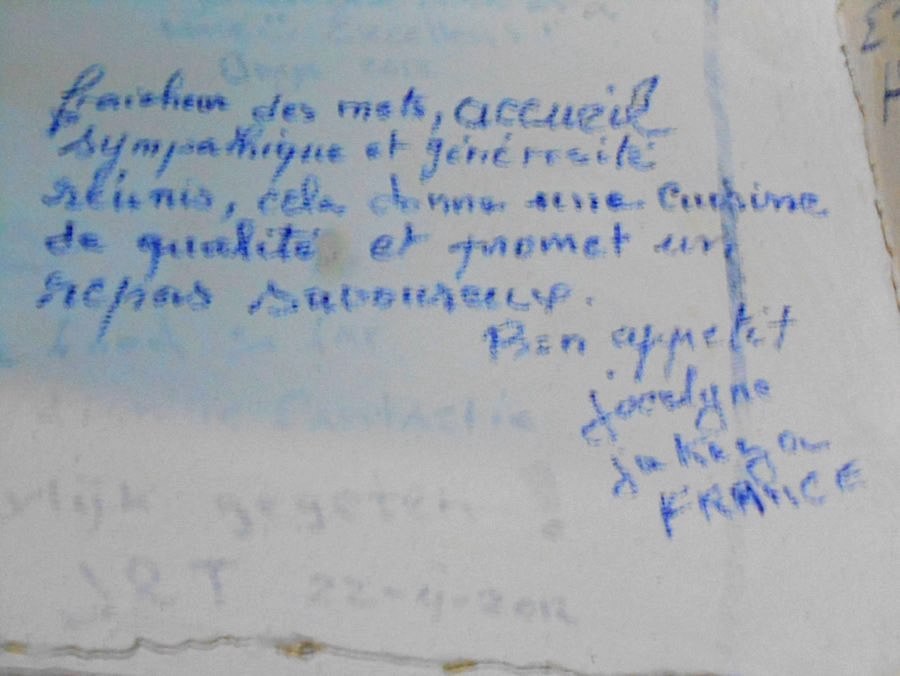 Excellent!
2012
fraicheur des mets, accueil
sympathique et générosité
réunis, cela donne une cuisine
de qualité et promet un
repas savoureux.
Bon appetit
jocelyne
FRANCE
fantastic
gegeten !
22-4-2012